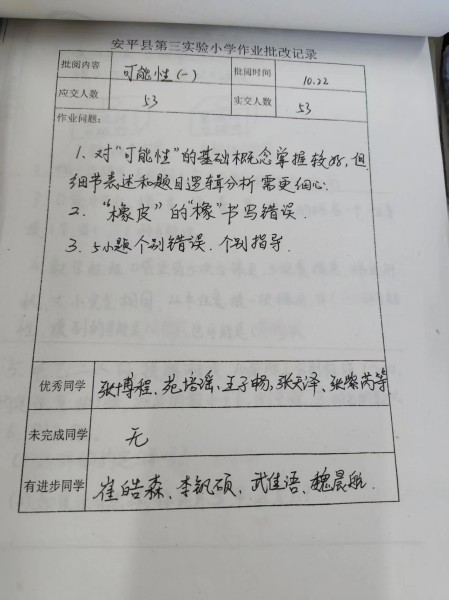 安平县第三实验小学作业批改记录
批阅内容 可能性(一) 批阅时间 10.22
应交人数 53 实交人数 53
作业问题:
1. 对“可能性”的基础概念掌握较好,但
细节表述和题目逻辑分析需更细心.
2. “橡皮”的“橡”书写错误.
3. 5小题个别错误.个别指导.
优秀同学 张博程、苑培瑶、王子畅、张天泽、张紫芮等
未完成同学 无
有进步同学 崔皓森、李钒硕、武佳语、魏晨航.